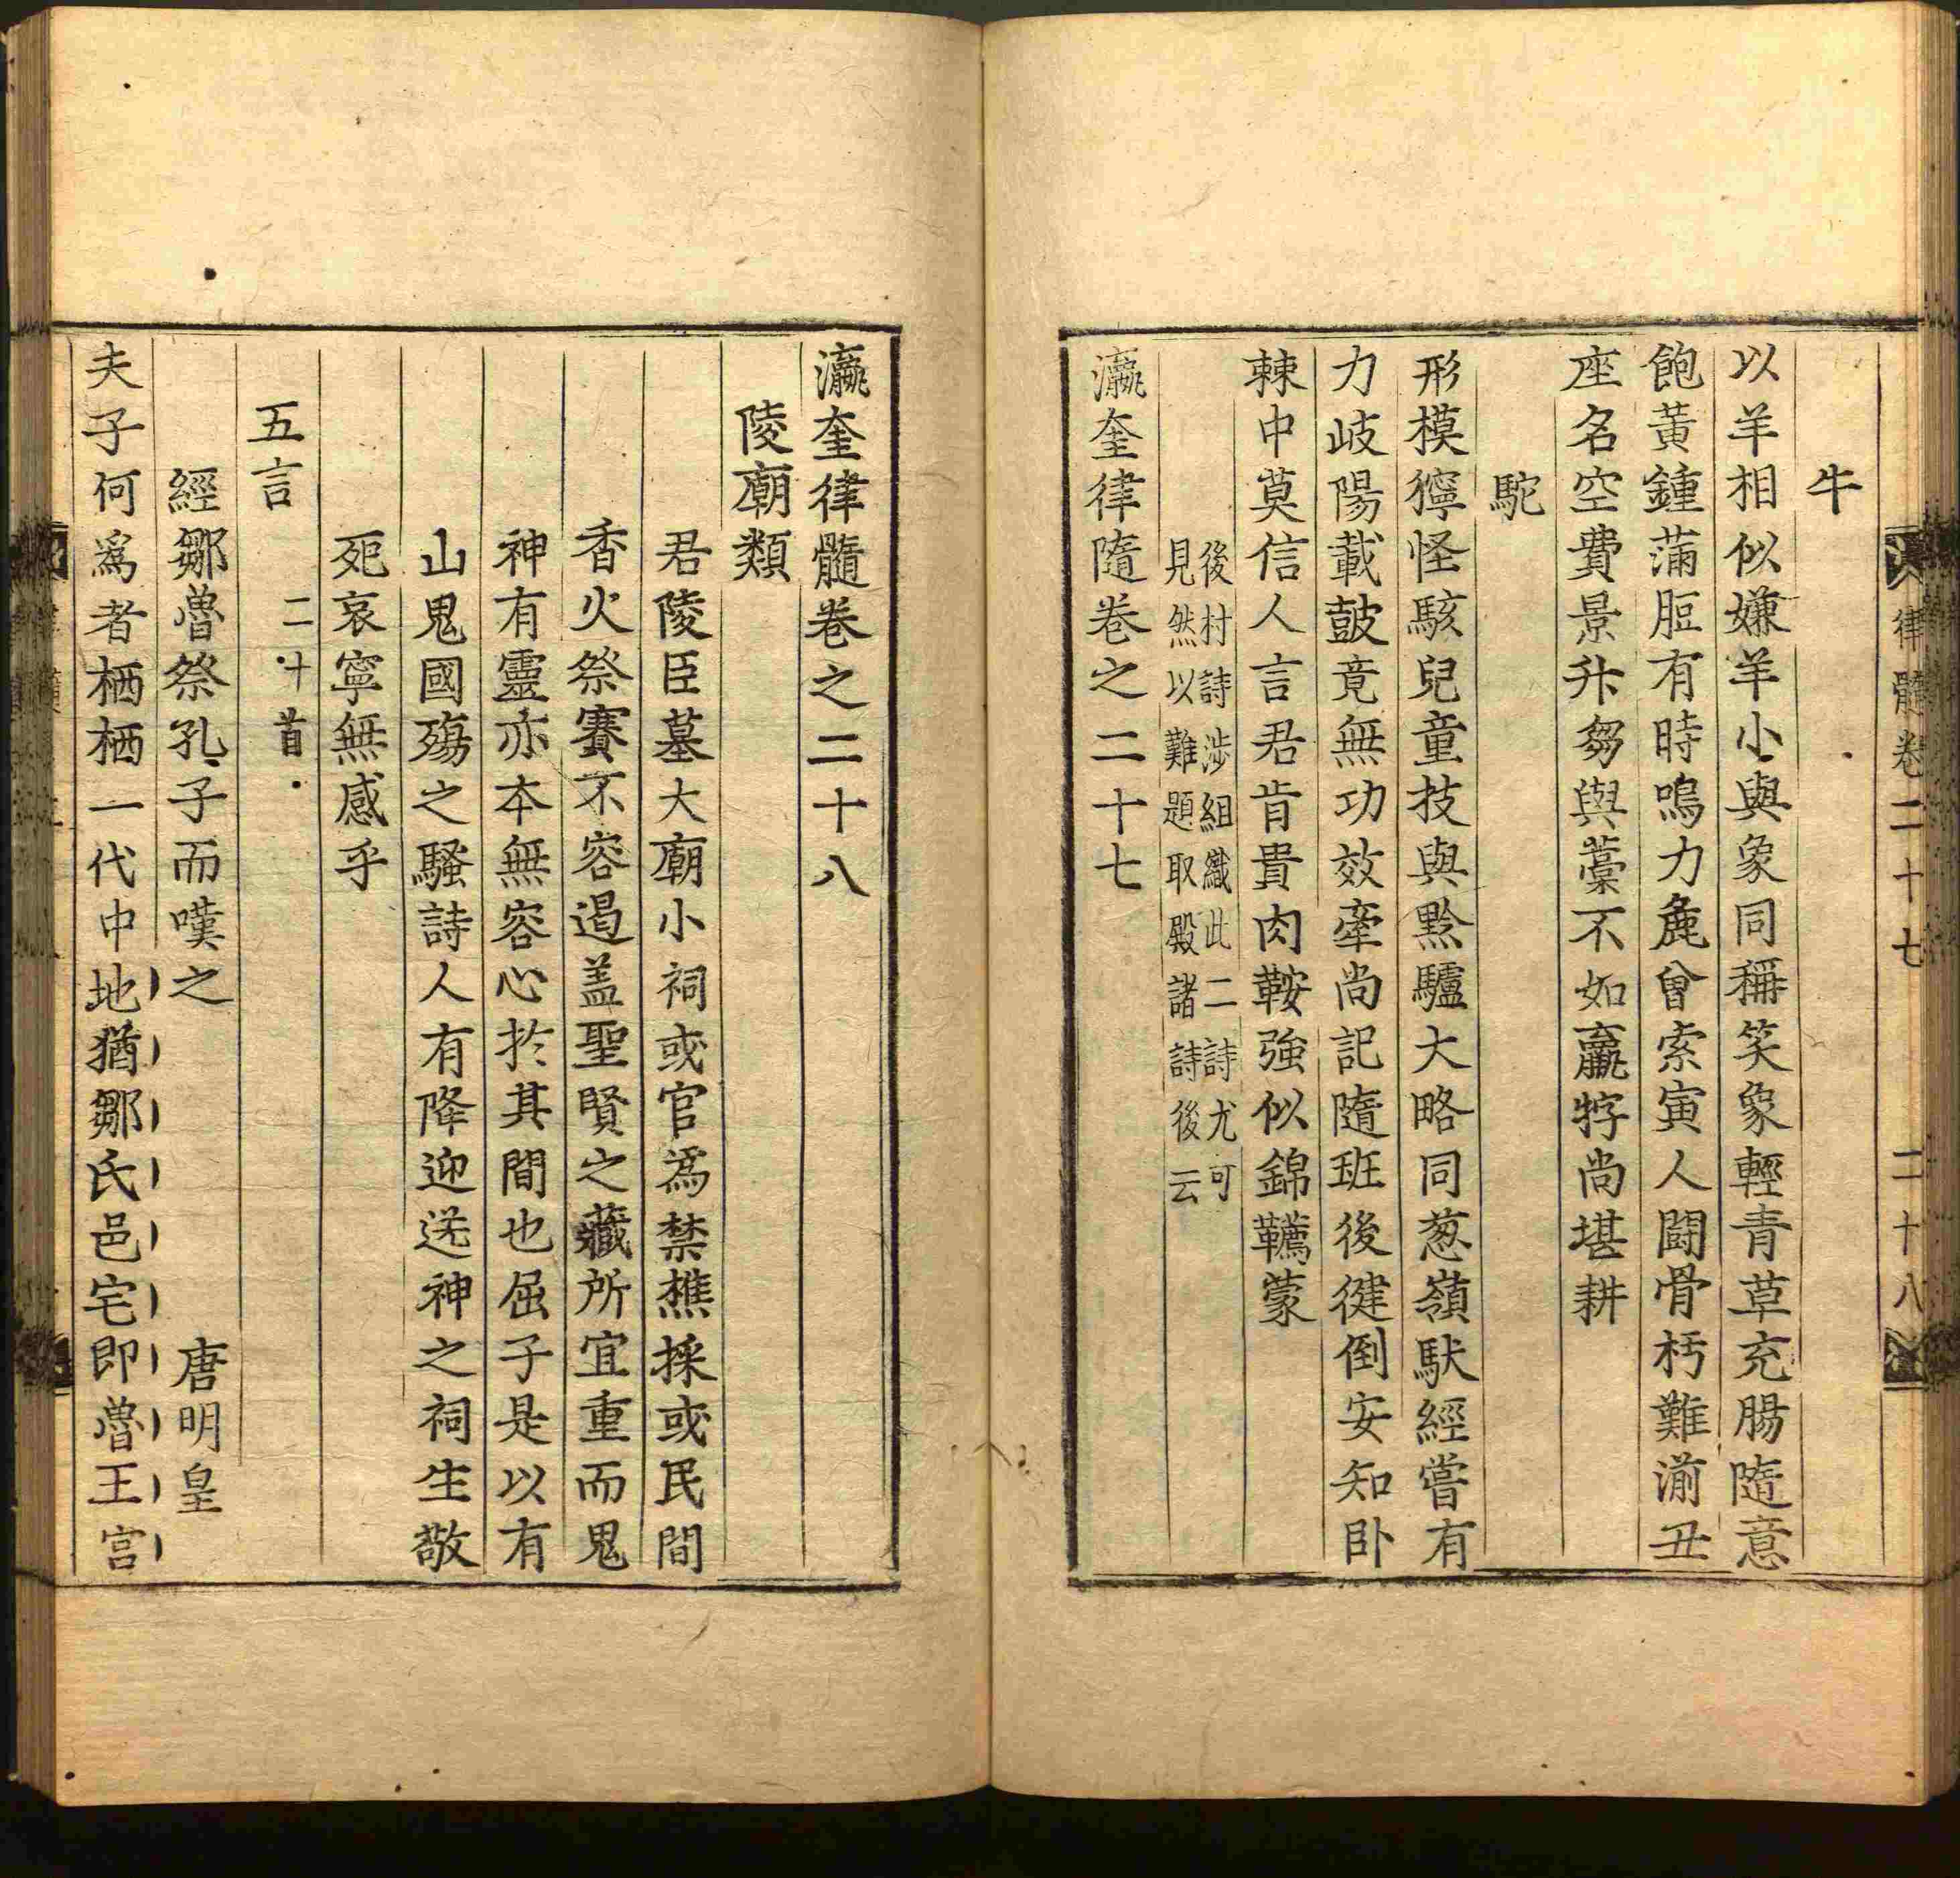 牛
以羊相似嫌羊小與象同稱笑象輕青草充腸隨意
飽黃鍾蒲脰有時鳴力麁曾索寅人鬪骨朽難湔丑
座名空費景升芻與藁不如羸牸尚堪耕
駝
形模獰怪駭兒童技與黔驢大略同葱嶺馱經嘗有
力岐陽載鼓竟無功效牽尚記隨班後徤倒安知卧
棘中莫信人言君肯貴肉鞍強似錦韉蒙
後村詩渉組織此二詩尤可
見然以難題取殿諸詩後云
瀛奎律隨卷之二十七
律髓卷二十七 二十八
瀛奎律髓卷之二十八
陵廟類
君陵臣墓大廟小祠或官爲禁樵採或民間
香火祭賽不容遏盖聖賢之藏所宜重而鬼
神有靈亦本無容心於其間也屈子是以有
山鬼國殤之騷詩人有降迎送神之祠生敬
死哀寧無感乎
五言 二十首
經鄒魯祭孔子而嘆之 唐明皇
夫子何爲者栖栖一代中地猶鄒氏邑宅即魯王宫